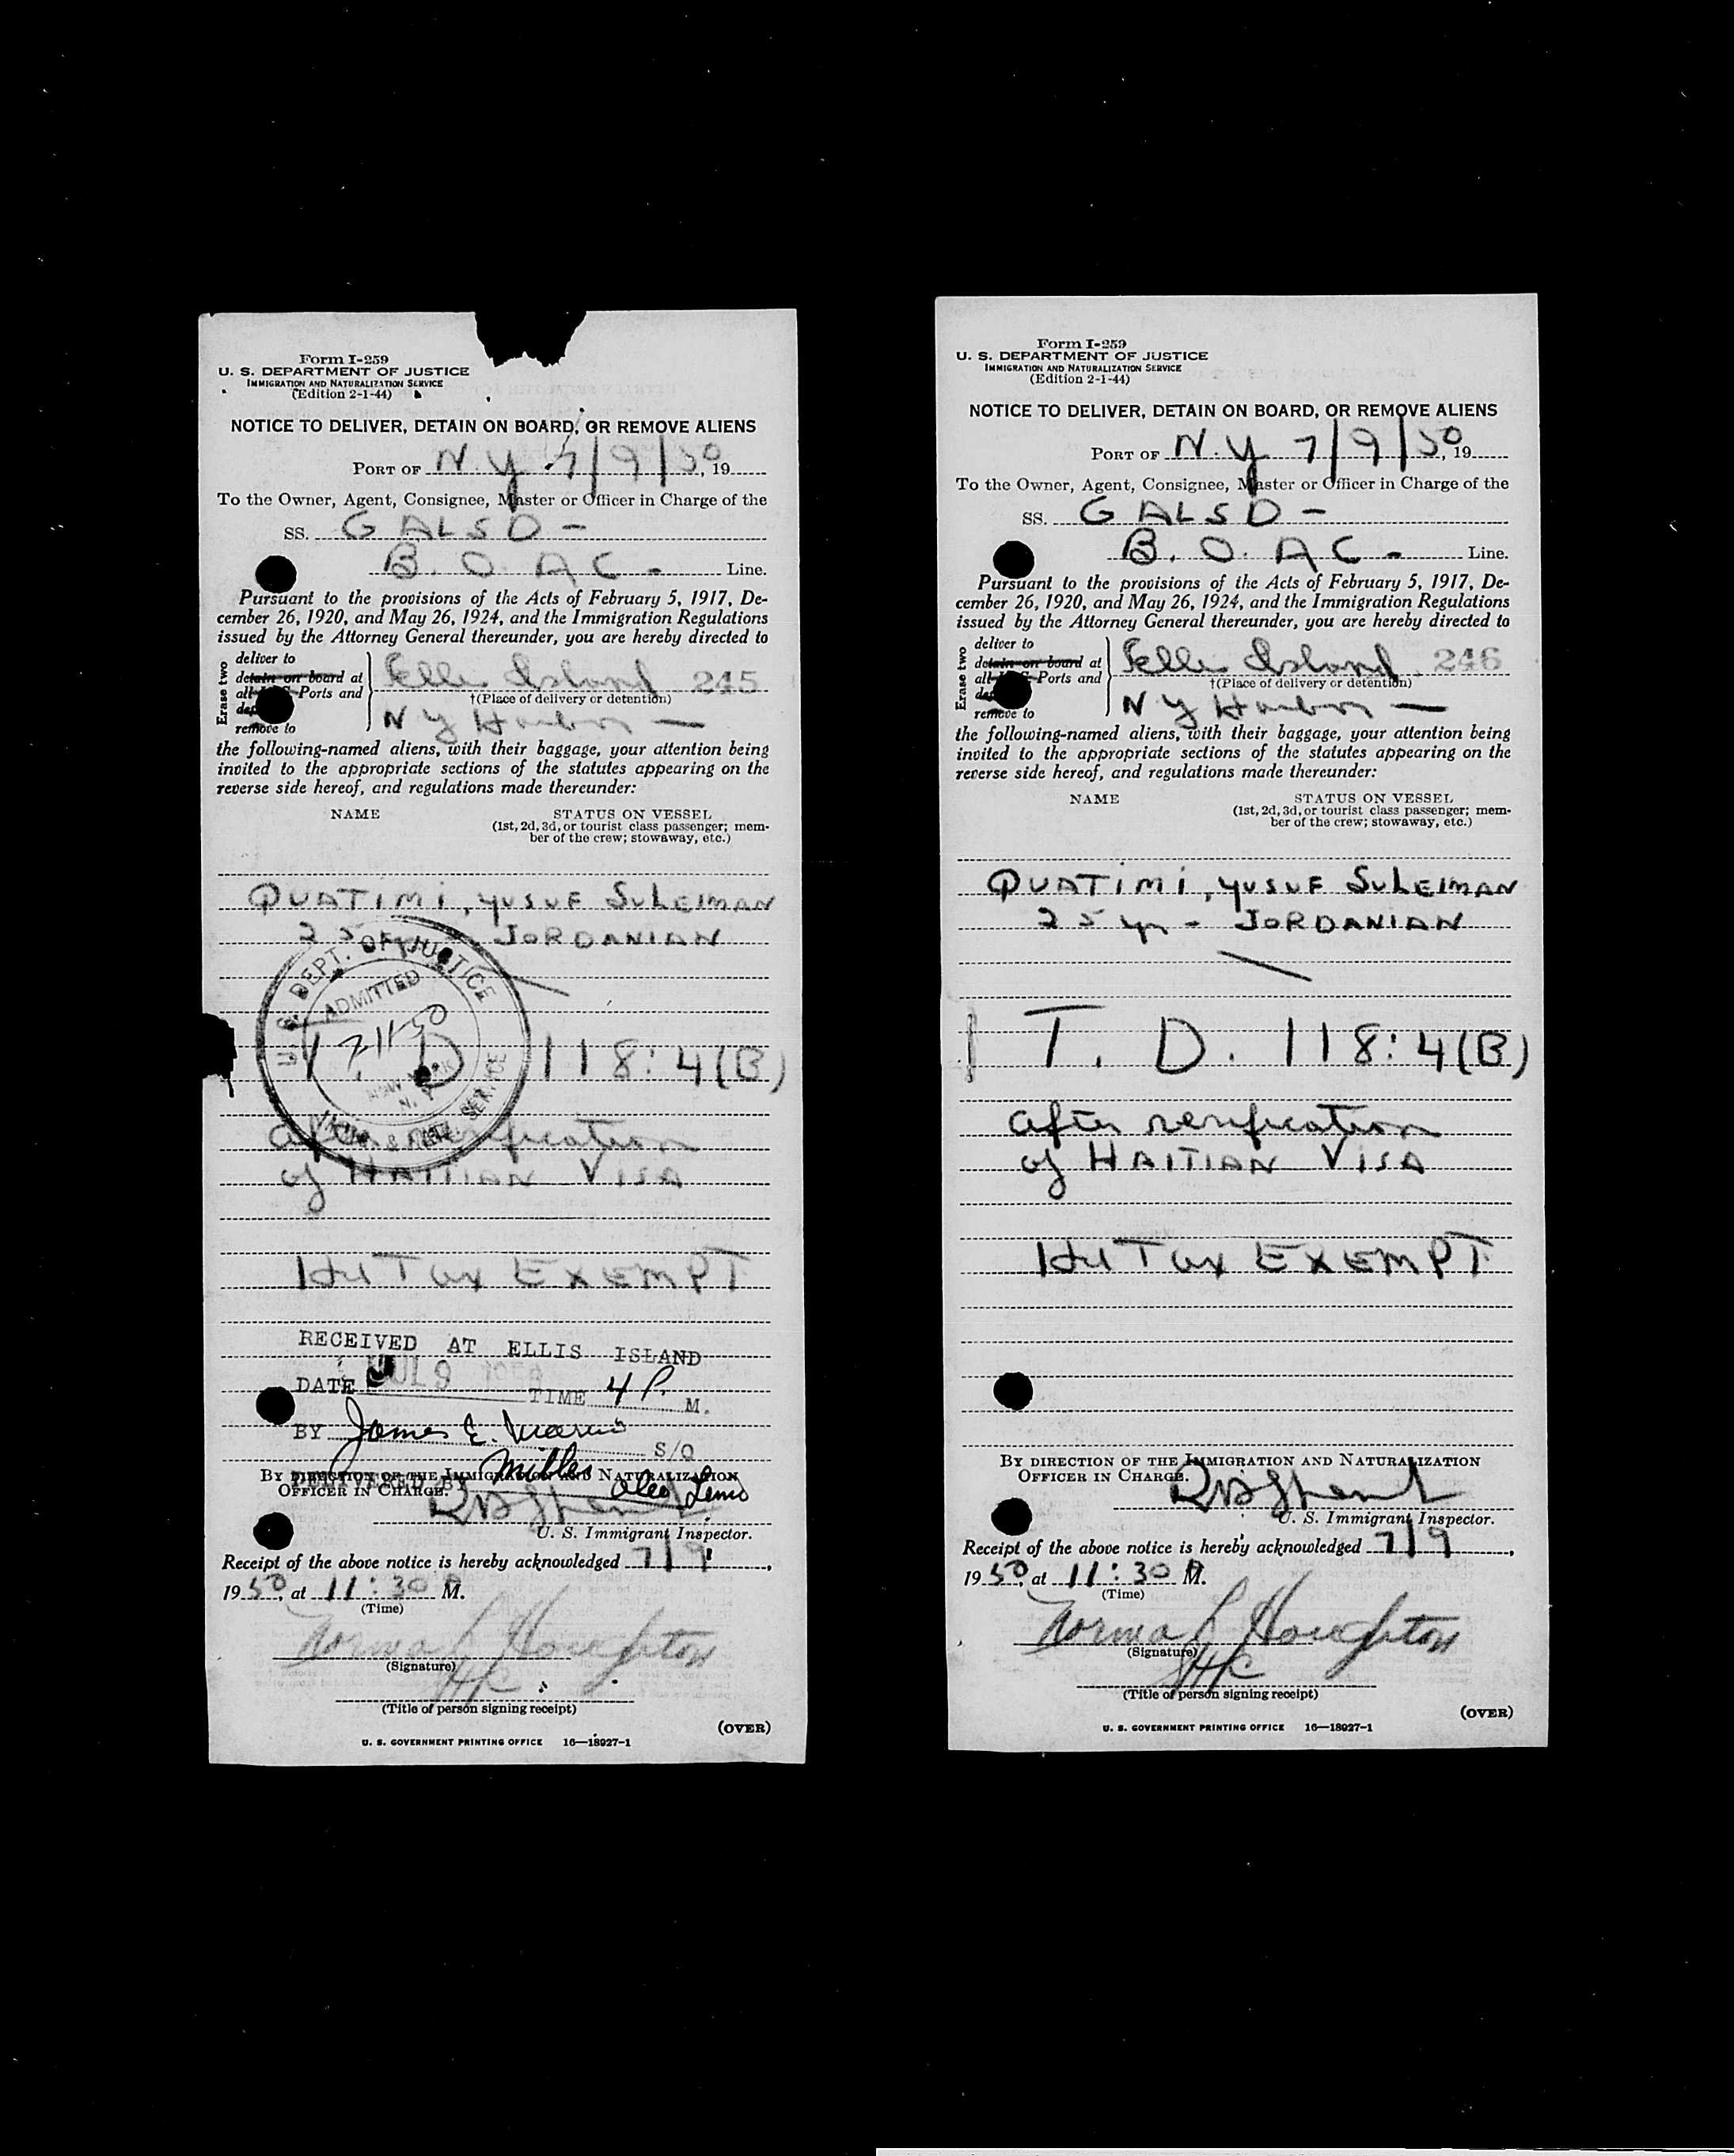 Form I-259
U. S. DEPARTMENT OF JUSTICE
IMMIGRATION AND NATURALIZATION SERVICE
(Edition 2-1-44)
NOTICE TO DELIVER, DETAIN ON BOARD, OR REMOVE ALIENS
PORT OF N.Y 7/9/50, 19
To the Owner, Agent, Consignee, Master or Officer in Charge of the
SS. GALSD -
B.O.A.C. - Line.
Pursuant to the provisions of the Acts of February 5, 1917, De-
cember 26, 1920, and May 26, 1924, and the Immigration Regulations
issued by the Attorney General thereunder, you are hereby directed to
Erase two
deliver to
detain on board at
all U. S. Ports and
remove to
Ellis Island 245
†(Place of delivery or detention)
N Y Harbor —
the following-named aliens, with their baggage, your attention being
invited to the appropriate sections of the statutes appearing on the
reverse side hereof, and regulations made thereunder:
NAME STATUS ON VESSEL
(1st, 2d, 3d, or tourist class passenger; mem-
ber of the crew; stowaway, etc.)
QUATIMI, YUSUF SULEIMAN
25 yr - JORDANIAN
U. S. DEPT. OF JUSTICE
ADMITTED
7-11-50
NEW YORK
N. Y.
IMMIG. & NATZ. SERVICE
T. D. 118:4(B)
after verification
of HAITIAN VISA
Hd Tax EXEMPT
RECEIVED AT ELLIS ISLAND
DATE JUL 9 1950 TIME 4 P. M.
BY James E. S/O
DELIVERED BY
BY DIRECTION OF THE IMMIGRATION AND NATURALIZATION
OFFICER IN CHARGE.
U. S. Immigrant Inspector.
Receipt of the above notice is hereby acknowledged 7/9,
1950, at 11:30 A M.
(Time)
Norma L Houghton
(Signature)
(Title of person signing receipt)
(OVER)
U. S. GOVERNMENT PRINTING OFFICE 16—18027-1
Form I-259
U. S. DEPARTMENT OF JUSTICE
IMMIGRATION AND NATURALIZATION SERVICE
(Edition 2-1-44)
NOTICE TO DELIVER, DETAIN ON BOARD, OR REMOVE ALIENS
PORT OF N.Y 7/9/50, 19
To the Owner, Agent, Consignee, Master or Officer in Charge of the
SS. GALSD -
B.O.A.C. - Line.
Pursuant to the provisions of the Acts of February 5, 1917, De-
cember 26, 1920, and May 26, 1924, and the Immigration Regulations
issued by the Attorney General thereunder, you are hereby directed to
Erase two
deliver to
detain on board at
all U. S. Ports and
remove to
Ellis Island 246
†(Place of delivery or detention)
N Y Harbor —
the following-named aliens, with their baggage, your attention being
invited to the appropriate sections of the statutes appearing on the
reverse side hereof, and regulations made thereunder:
NAME STATUS ON VESSEL
(1st, 2d, 3d, or tourist class passenger; mem-
ber of the crew; stowaway, etc.)
QUATIMI, YUSUF SULEIMAN
25 yr - JORDANIAN
T. D. 118:4(B)
after verification
of HAITIAN VISA
Hd Tax EXEMPT
BY DIRECTION OF THE IMMIGRATION AND NATURALIZATION
OFFICER IN CHARGE.
U. S. Immigrant Inspector.
Receipt of the above notice is hereby acknowledged 7/9,
1950, at 11:30 A M.
(Time)
Norma L Houghton
(Signature)
(Title of person signing receipt)
(OVER)
U. S. GOVERNMENT PRINTING OFFICE 16—18027-1